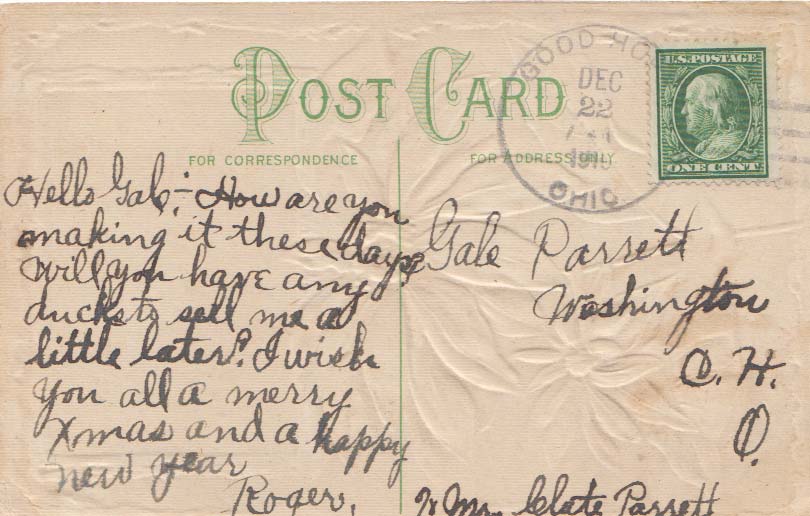 POST CARD
FOR CORRESPONDENCE
FOR ADDRESS ONLY
GOOD HO
DEC
22
OHIO
U.S. POSTAGE
ONE CENT
Hello Gale;- How are you
making it these days?
Will you have any
ducks to sell me a
little later? I wish
you all a merry
Xmas and a happy
new year
Roger.
Gale Parrett
Washington
C. H.
O.
Mr. Clate Parrett